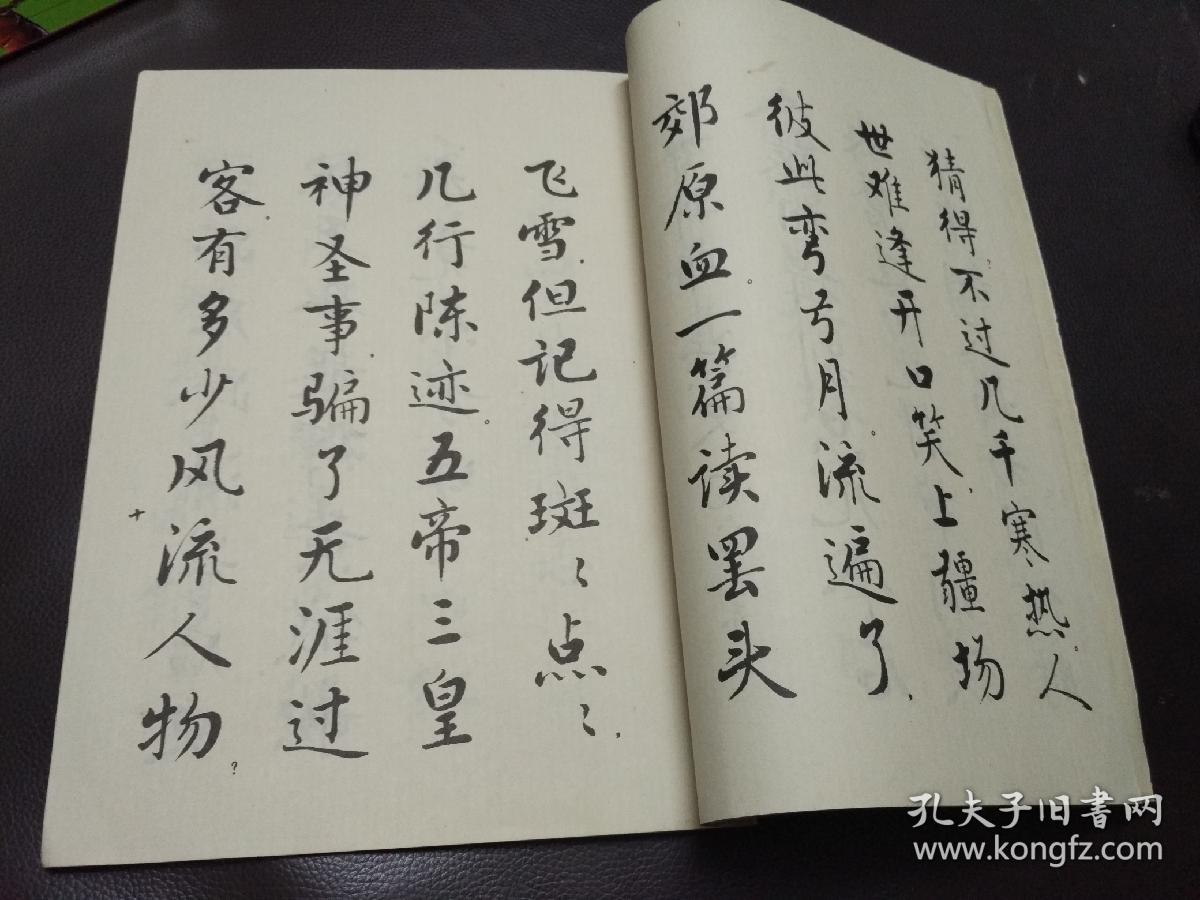 猜得。不过几千寒热。人
世难逢开口笑，上疆场
彼此弯弓月。流遍了，
郊原血。一篇读罢头
飞雪，但记得斑〻点〻，
几行陈迹。五帝三皇
神圣事，骗了无涯过
客。有多少风流人物？
+
孔夫子旧书网
www.kongfz.com